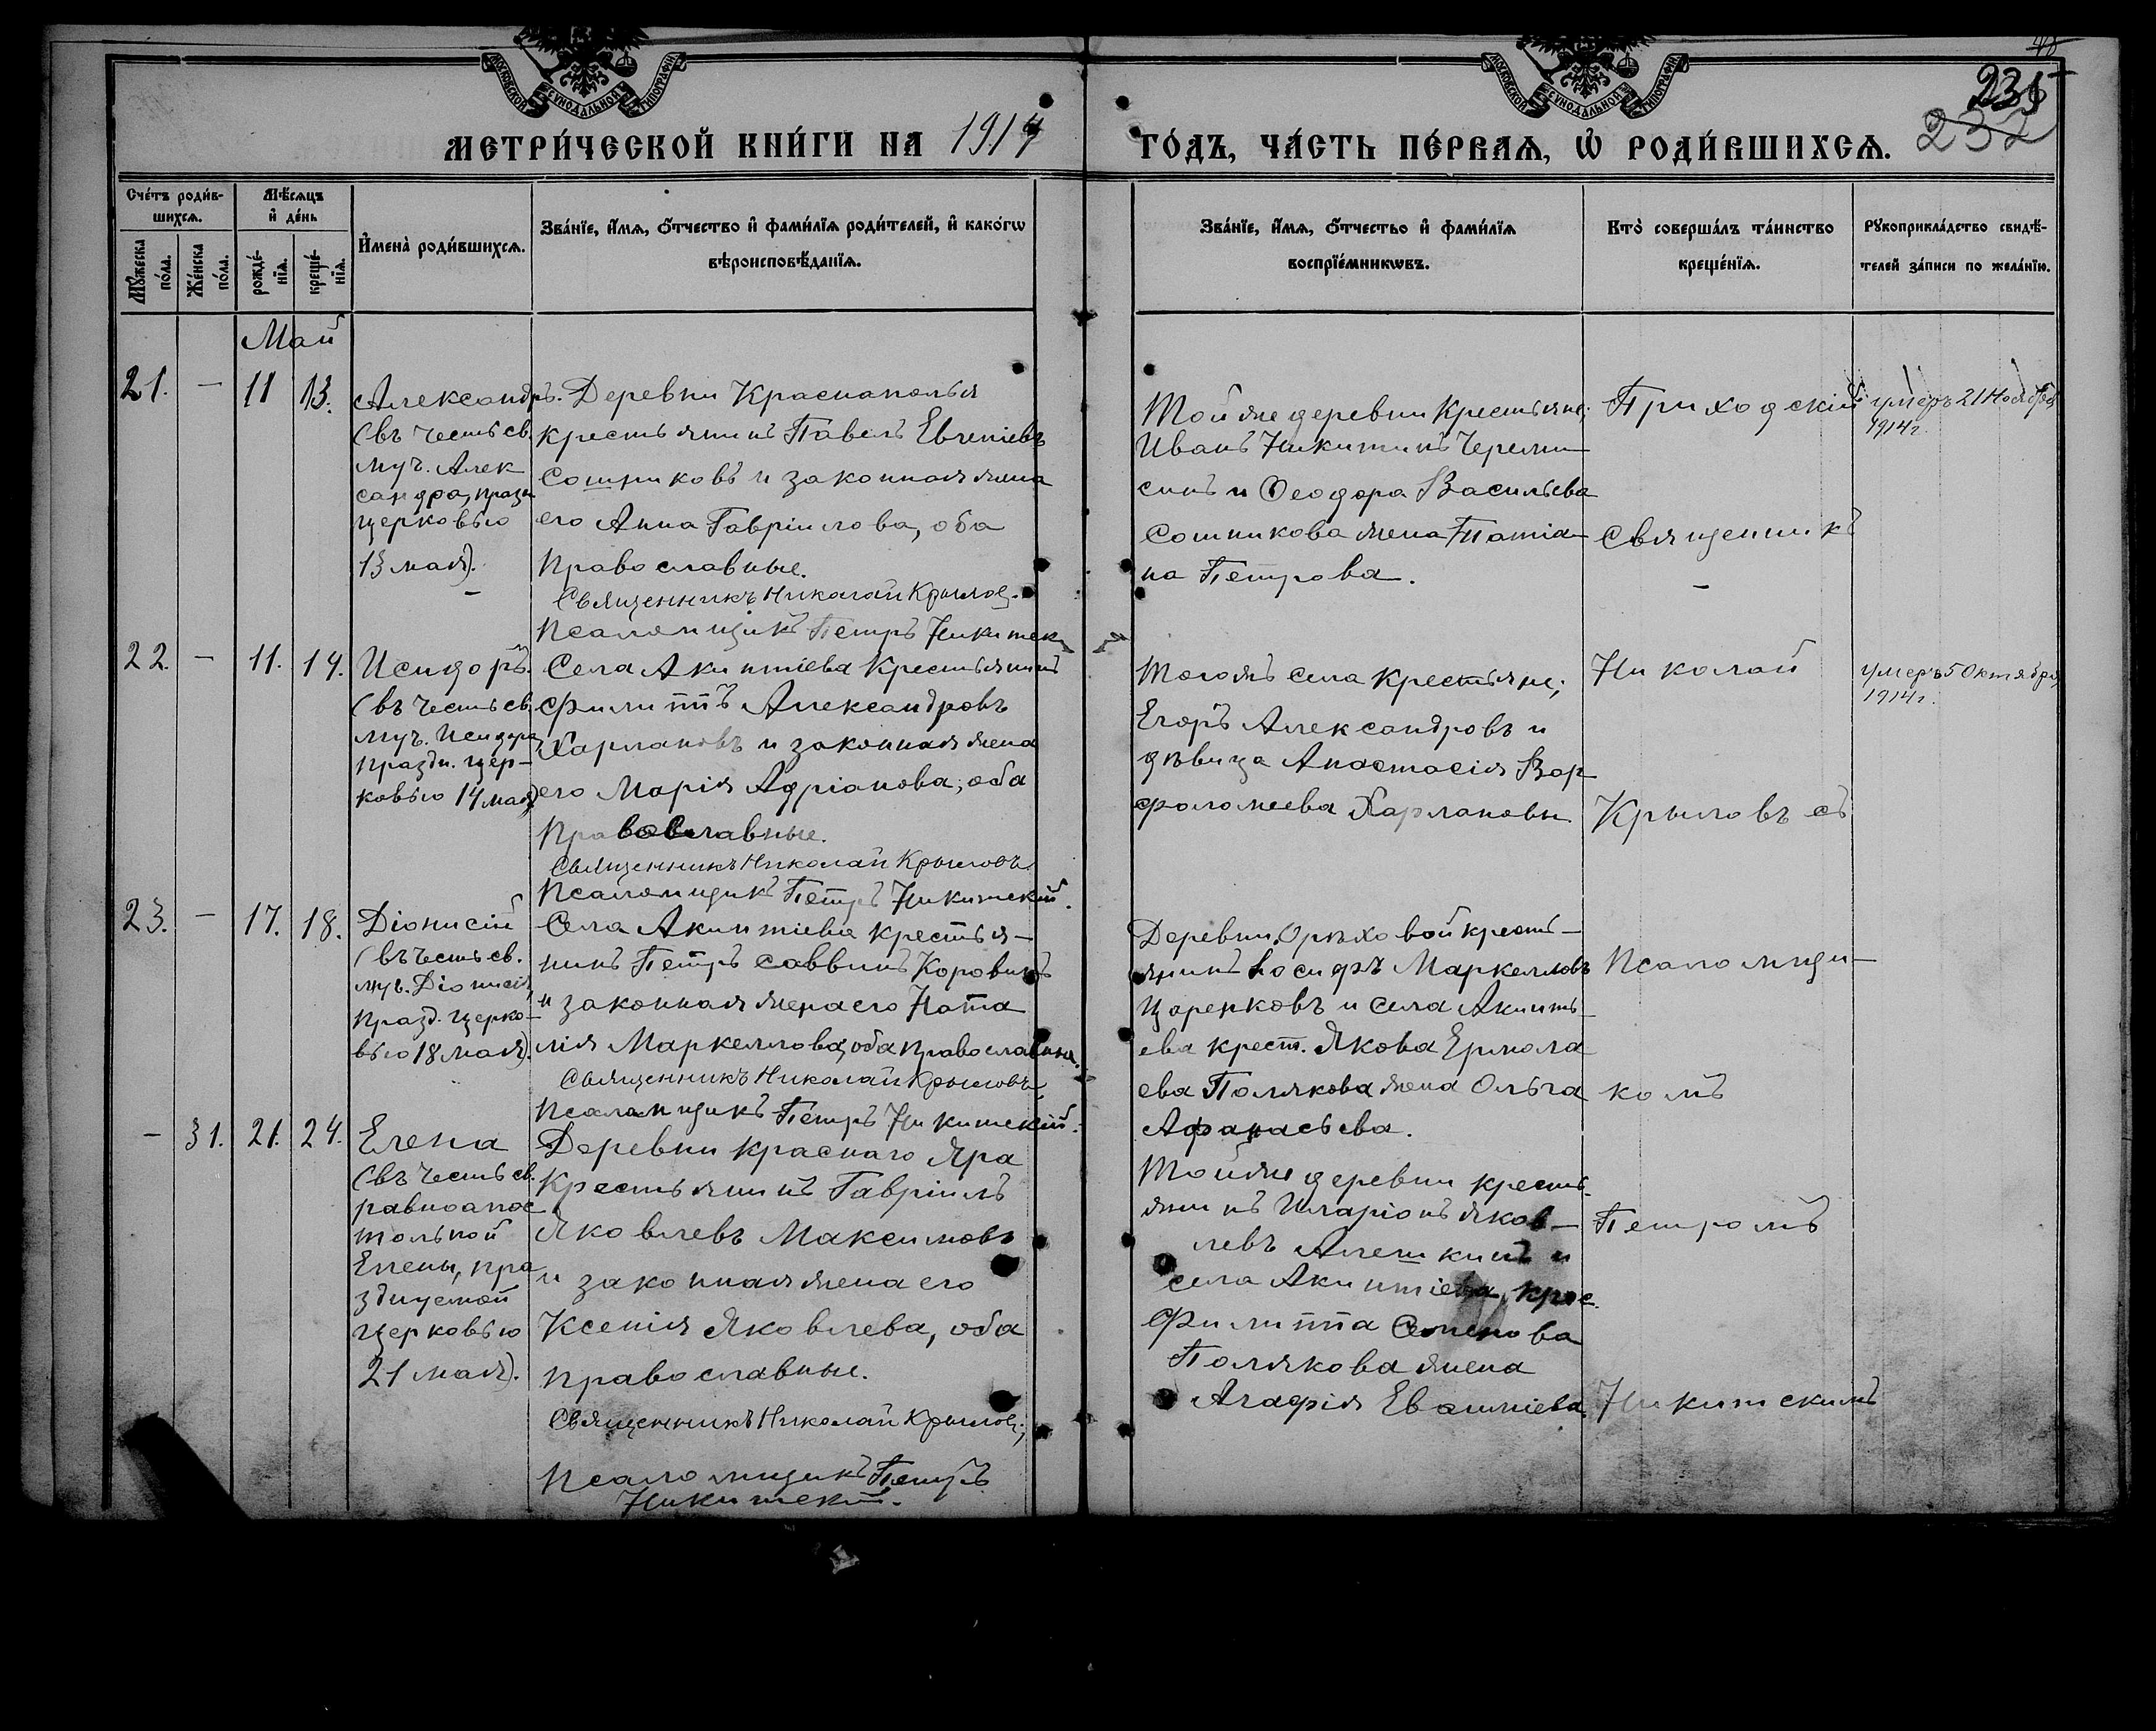 48
235
232
МОСКОВСКОЙ СѴНОДАЛЬНОЙ ТИПОГРАФІИ
МОСКОВСКОЙ СѴНОДАЛЬНОЙ ТИПОГРАФІИ
МЕТРИ́ЧЕСКОЙ КНИ́ГИ НА 1914
ГО́ДЪ, ЧА́СТЬ ПЕ́РВАѦ, Ѽ РОДИ́ВШИХСѦ.
Сче́тъ роди́в-
шихсѧ.
Мꙋ́жеска по́ла.
Же́нска по́ла.
Мѣ́сѧцъ
и҆ де́нь
рожде́-
нїѧ.
креще́-
нїѧ.
И҆мена̀ роди́вшихсѧ.
Зва́нїе, и҆́мѧ, ѻ҆́тчество и҆ фами́лїѧ роди́телей, и҆ како́гѡ
вѣроисповѣ́данїѧ.
Зва́нїе, и҆́мѧ, ѻ҆́тчество и҆ фами́лїѧ
воспрїе́мникѡвъ.
Кто̀ соверша́лъ та́инство
креще́нїѧ.
Рꙋкоприкла́дство свидѣ́-
телей за́писи по жела́нїю.
Май
21. — 11 13.
Александръ.
(въ честь св.
муч. Алек
сандра, празд
церковью
13 мая).
Деревни Краснополья
крестьянинъ Павелъ Евгеніевъ
Сошниковъ и законная жена
его Анна Гавріилова, оба
Православные.
Священникъ Николай Крыловъ.
Псаломщикъ Петръ Никитск
Той же деревни крестьяне;
Иванъ Никитинъ Череми-
синъ и Ѳеодора Васильева
Сошникова жена Татіа-
на Петрова.
Приходскій
Священникъ
умеръ 21 Ноября
1914 г.
22. — 11. 14.
Исидоръ.
(въ честь св.
муч. Исидора
праздн. цер-
ковью 14 мая)
Села Акинтіева Крестьянинъ
Филиппъ Александровъ
Харлановъ и законная жена
его Марія Адріанова, оба
Православные.
Священникъ Николай Крыловъ
Псаломщикъ Петръ Никитскій.
Тогожъ села крестьяне;
Егоръ Александровъ и
дѣвица Анастасія Вар
фоломеева Харлановы
Николай
Крыловъ съ
умеръ 5 Октября
1914 г.
23. — 17. 18.
Діонисій
(въ честь св.
муч. Діонисія,
празд. церко-
вью 18 мая).
Села Акинтіева крестья-
нинъ Петръ Саввинъ Коровинъ
и законная жена его Ната
лія Маркеллова, оба православны.
Священникъ Николай Крыловъ
Псаломщикъ Петръ Никитскій.
Деревни Орѣховой кресть-
янинъ Іосифъ Маркелловъ
Царенковъ и села Акинті-
ева крест. Якова Ермола
ева Полякова жена Ольга
Афанасьева.
Псаломщи-
комъ
— 31. 21. 24.
Елена
(въ честь св.
равноапос
тольной
Елены, пра
зднуемой
церковью
21 мая).
Деревни Краснаго Яра
Крестьянинъ Гавріилъ
Яковлевъ Максимовъ
и законная жена его
Ксенія Яковлева, оба
православные.
Священникъ Николай Крыловъ,
Псаломщикъ Петръ
Никитскій.
Той же деревни кресть-
янинъ Иларіонъ Яков-
левъ Алешкинъ и
села Акинтіева, крес.
Филиппа Семенова
Полякова жена
Агафія Евтихіева
Петромъ
Никитскимъ